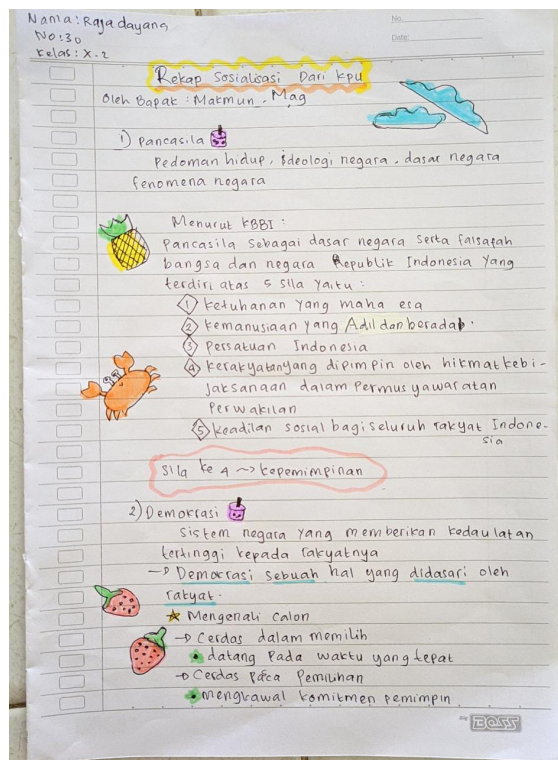 Nama: Raja dayang
No: 30
Kelas: X.2
No.
Date:
Rekap Sosialisasi Dari kpu
Oleh Bapak : Makmun . Mag
1) Pancasila
Pedoman hidup, ideologi negara, dasar negara
fenomena negara
Menurut KBBI :
Pancasila Sebagai dasar negara serta falsafah
bangsa dan negara Republik Indonesia yang
terdiri atas 5 sila yaitu :
1 Ketuhanan yang maha esa
2 kemanusiaan yang Adil dan beradab.
3 Persatuan Indonesia
4 kerakyatan yang dipimpin oleh hikmat kebi-
jaksanaan dalam Permusyawaratan
Perwakilan
5 Keadilan sosial bagi seluruh rakyat Indone-
sia
Sila ke 4 ~> kepemimpinan
2) Demokrasi
Sistem negara yang memberikan kedaulatan
tertinggi kepada rakyatnya
→ Demokrasi sebuah hal yang didasari oleh
rakyat.
★ Mengenali calon
→ Cerdas dalam memilih
datang pada waktu yang tepat
→ Cerdas Paca Pemilihan
mengkawal komitmen pemimpin
BOSS